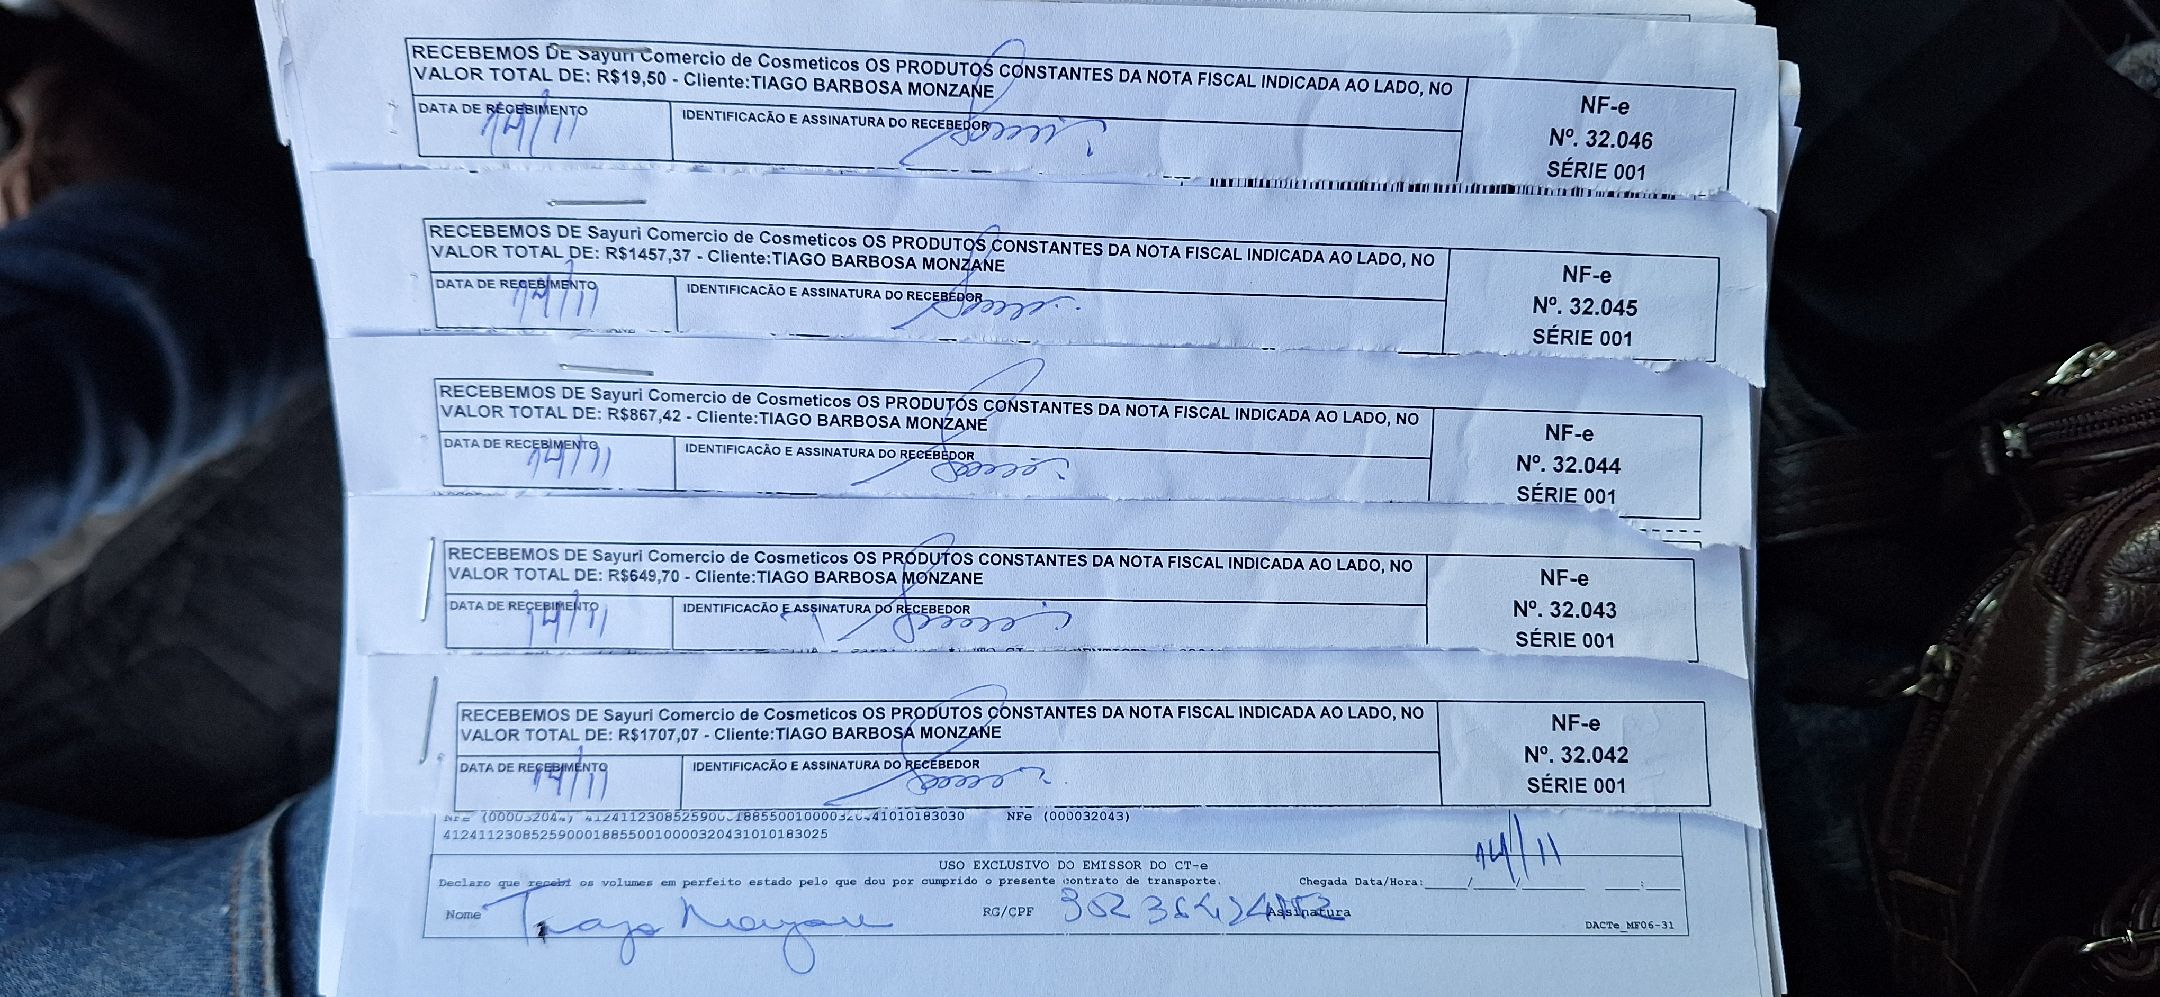 RECEBEMOS DE Sayuri Comercio de Cosmeticos OS PRODUTOS CONSTANTES DA NOTA FISCAL INDICADA AO LADO, NO
VALOR TOTAL DE: R$19,50 - Cliente:TIAGO BARBOSA MONZANE
DATA DE RECEBIMENTO
14/11
IDENTIFICACÃO E ASSINATURA DO RECEBEDOR
NF-e
Nº. 32.046
SÉRIE 001
RECEBEMOS DE Sayuri Comercio de Cosmeticos OS PRODUTOS CONSTANTES DA NOTA FISCAL INDICADA AO LADO, NO
VALOR TOTAL DE: R$1457,37 - Cliente:TIAGO BARBOSA MONZANE
DATA DE RECEBIMENTO
14/11
IDENTIFICACÃO E ASSINATURA DO RECEBEDOR
NF-e
Nº. 32.045
SÉRIE 001
RECEBEMOS DE Sayuri Comercio de Cosmeticos OS PRODUTOS CONSTANTES DA NOTA FISCAL INDICADA AO LADO, NO
VALOR TOTAL DE: R$867,42 - Cliente:TIAGO BARBOSA MONZANE
DATA DE RECEBIMENTO
14/11
IDENTIFICACÃO E ASSINATURA DO RECEBEDOR
NF-e
Nº. 32.044
SÉRIE 001
RECEBEMOS DE Sayuri Comercio de Cosmeticos OS PRODUTOS CONSTANTES DA NOTA FISCAL INDICADA AO LADO, NO
VALOR TOTAL DE: R$649,70 - Cliente:TIAGO BARBOSA MONZANE
DATA DE RECEBIMENTO
14/11
IDENTIFICACÃO E ASSINATURA DO RECEBEDOR
NF-e
Nº. 32.043
SÉRIE 001
RECEBEMOS DE Sayuri Comercio de Cosmeticos OS PRODUTOS CONSTANTES DA NOTA FISCAL INDICADA AO LADO, NO
VALOR TOTAL DE: R$1707,07 - Cliente:TIAGO BARBOSA MONZANE
DATA DE RECEBIMENTO
14/11
IDENTIFICACÃO E ASSINATURA DO RECEBEDOR
NF-e
Nº. 32.042
SÉRIE 001
NFe NFe (000032043)
41241123085259000188550010000320431010183025
14/11
USO EXCLUSIVO DO EMISSOR DO CT-e
Declaro que recebi os volumes em perfeito estado pelo que dou por cumprido o presente contrato de transporte. Chegada Data/Hora:____/____/______ ___:____
Nome Tiago RG/CPF Assinatura
DACTe_MF06-31